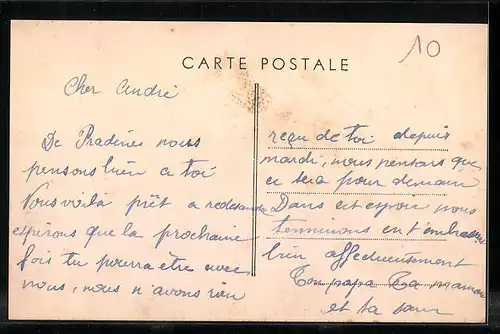 10
CARTE POSTALE
Cher André
De Pradines nous
pensons bien a toi
Vous voilà prêt a redescendre
espérons que la prochaine
fois tu pourra être avec
nous, nous n'avons rien
reçu de toi depuis
mardi, nous pensons que
ce sera pour demain
Dans cet espoir nous
terminons en t'embrassant
bien affectueusement
Ton papa Ta maman
et ta sœur